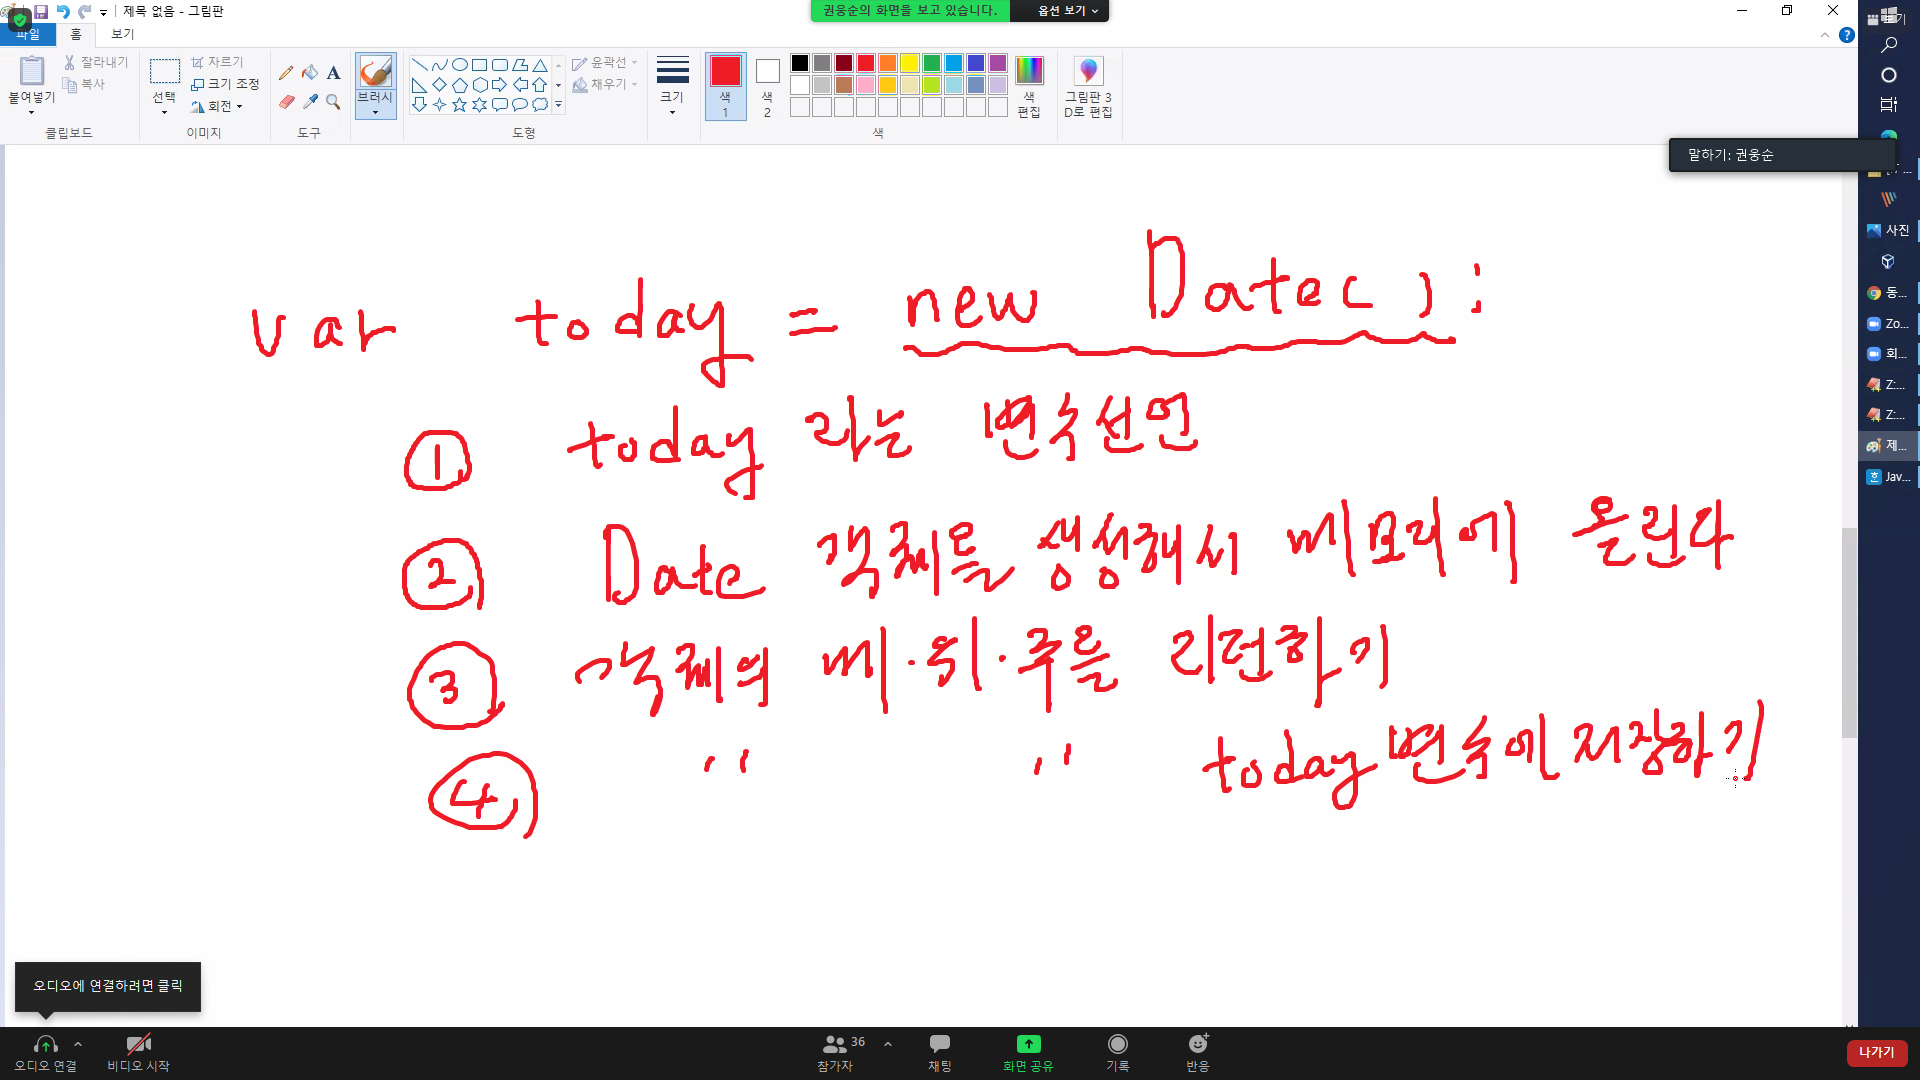 제목 없음 - 그림판
권웅순의 화면을 보고 있습니다.
옵션 보기
파일
홈
보기
붙여넣기
잘라내기
복사
클립보드
선택
자르기
크기 조정
회전
이미지
A
도구
브러시
도형
윤곽선
채우기
크기
색
1
색
2
색
편집
색
그림판 3
D로 편집
말하기: 권웅순
사진
동...
Zo...
회...
Z:...
Z:...
제...
Jav...
var today = new Date( ) ;
① today 라는 변수선언
② Date 객체를 생성해서 메모리에 올린다
③ 객체의 메·위·주를 리턴하기
④ " " today 변수에 저장하기
오디오에 연결하려면 클릭
오디오 연결
비디오 시작
36
참가자
채팅
화면 공유
기록
반응
나가기